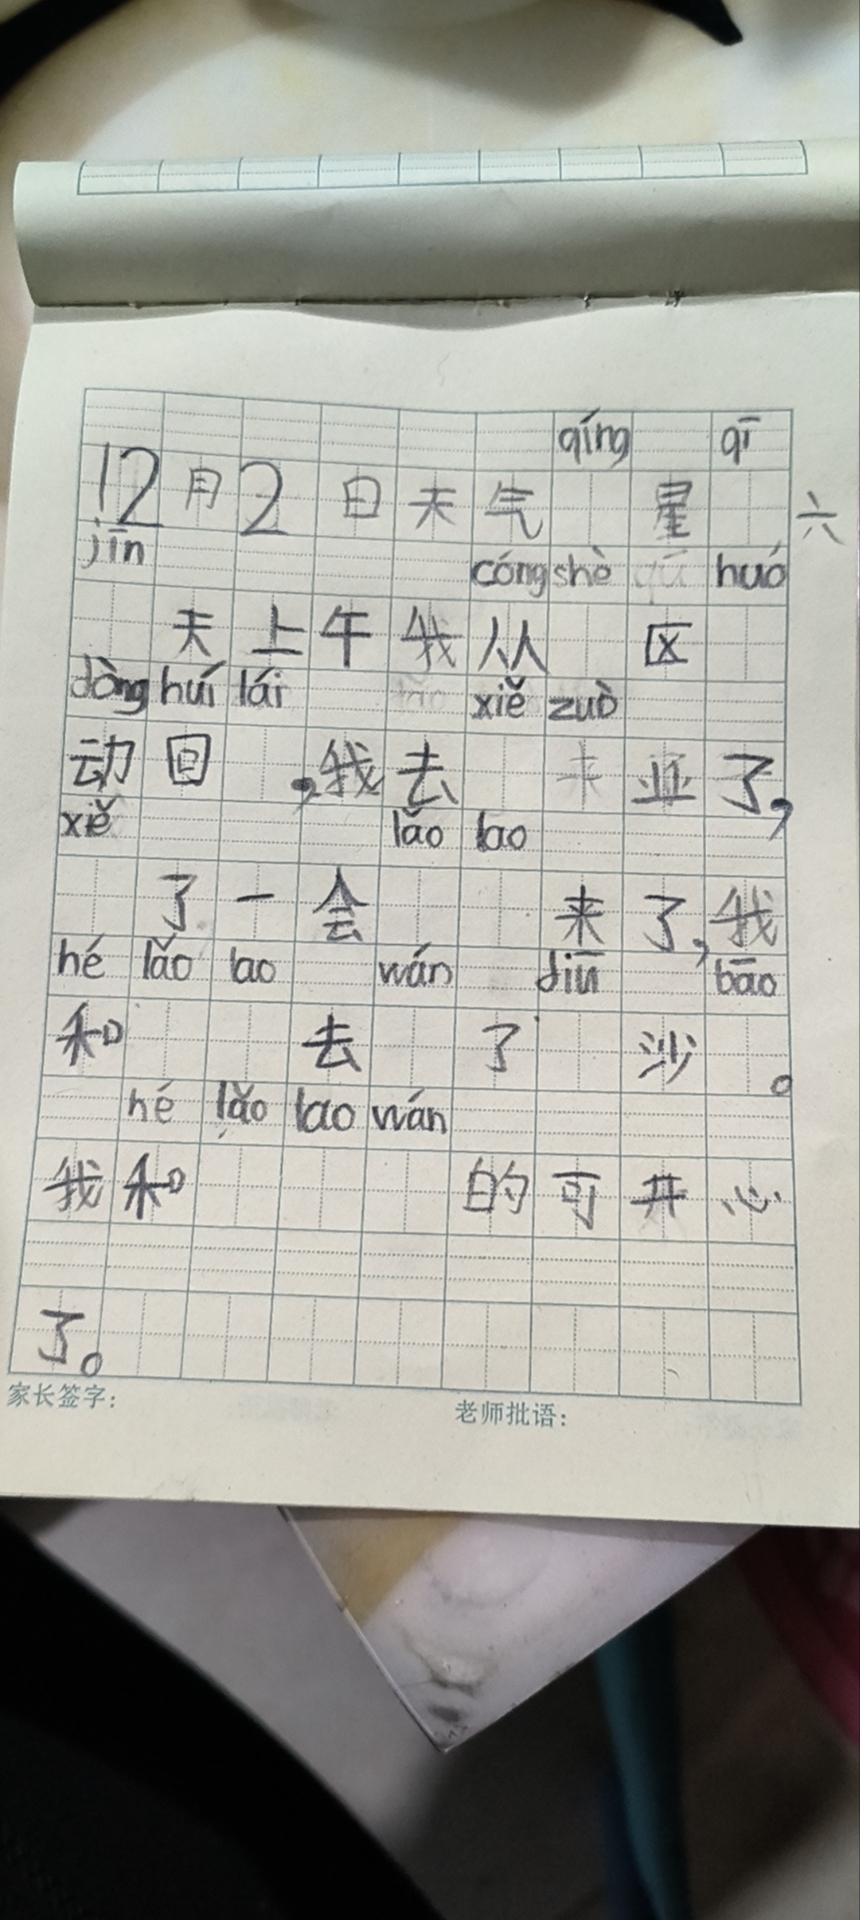 qíng qī
12月2日天气 星 六
jīn cóng shè qū huó
天上午我从 区
dòng huí lái xiě zuò
动回 ,我去 来业了,
xiě lǎo lao
了一会 来了,我
hé lǎo lao wán diū bāo
和 去 了 沙 。
hé lǎo lao wán
我和 的可开心
了。
家长签字： 老师批语：